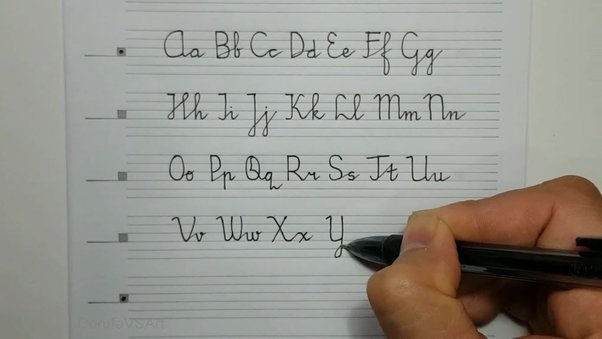 Aa Bb Cc Dd Ee Ff Gg
Hh Ii Jj Kk Ll Mm Nn
Oo Pp Qq Rr Ss Tt Uu
Vv Ww Xx Y